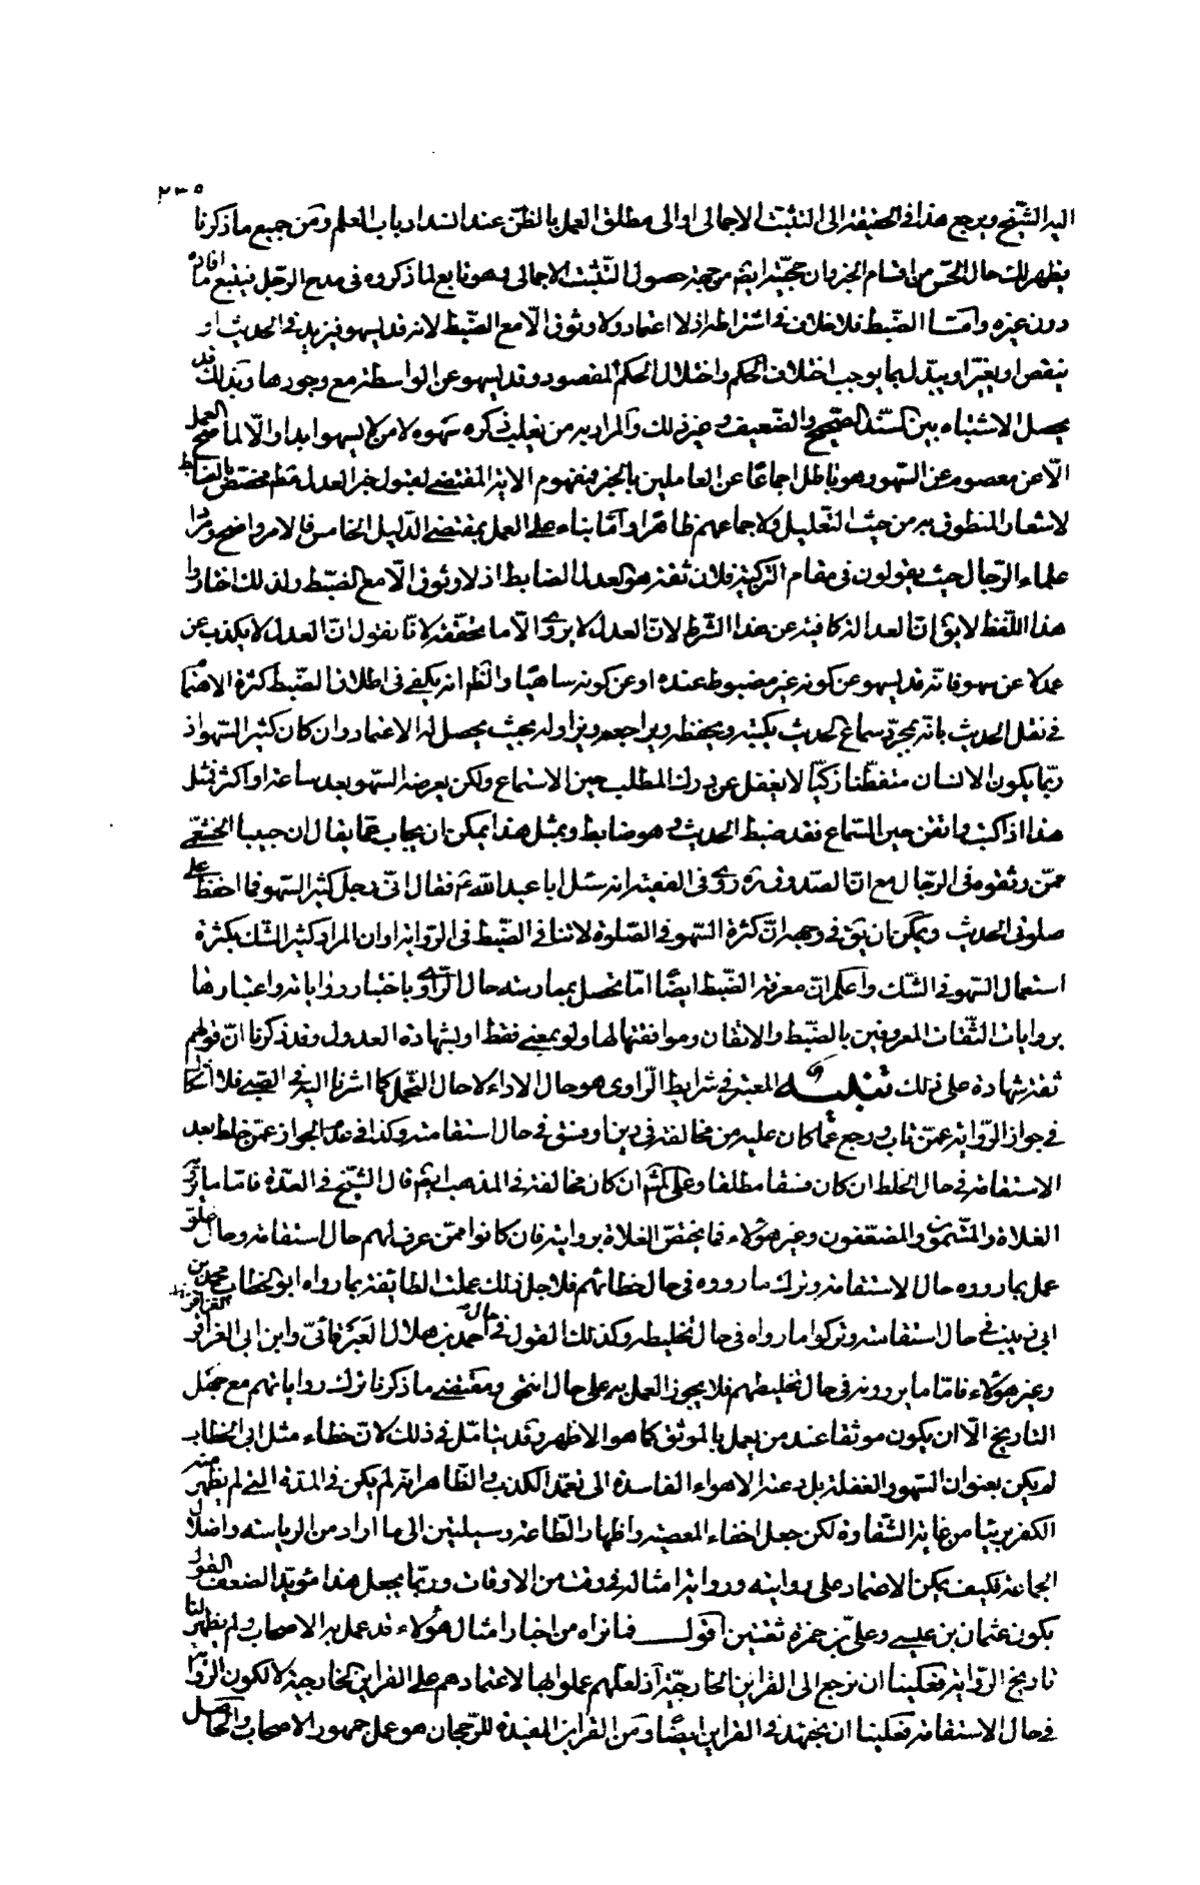 ٢٣٥
اليه الشّيخ ويرجع هذا في الحقيقة الى التثبت الاجمالى او الى مطلق العمل بالظنّ عند انسداد باب العلم ومن جميع ما ذكرنا
يظهر لك حال الحسن من اقسام الخبر وان حجيّته ايض من جهة حصول التّثبت الاجمالى وهو تابع لما ذكروه في مدح الرّجل فيتبع ما افاده
دون غيره وامّا الضّبط فلا خلاف في اشتراطه اذ لا اعتماد ولا وثوق الّا مع الضّبط لانه قد يسهو فيزيد في الحديث او
ينقص او يغيّر او يبدّل بما يوجب اختلاف الحكم واختلال الحكم المقصود وقد يسهو عن الواسطة مع وجودها وبذلك قد
يحصل الاشتباه بين السّند الصّحيح والضّعيف وغير ذلك والمراد به من يغلب ذكره سهوه لا من لا يسهو ابدا والّا لما صحّ العمل
الّا عن معصوم عن السّهو وهو باطل اجماعا عن العاملين بالخبر فمفهوم الاية المقتضى لقبول خبر العدل مط مختص بالضابط
لاشعار المنطوق به من حيث التّعليل ولاجماعهم ظاهرا وامّا بناء على العمل بمقتضى الدّليل الخامس فالامر واضح ومراد
علماء الرّجال حيث يقولون في مقام التزكية فلان ثقة هو العدل الضابط اذ لا وثوق الّا مع الضّبط ولذلك اختاروا
هذا اللّفظ لا يق انّ العدالة كافية عن هذا الشّرط لانّ العدل لا يروى الّا ما تحقّقه لانّا نقول انّ العدل لا يكذب عن
عمد لا عن سهو فانّه قد يسهو عن كونه غير مضبوط عنده او عن كونه ساهيا والظّم انه يكفى في اطلاق الضّبط كثرة الاهتمام
في نقل الحديث بانّه بمجرّد سماع الحديث يكتبه ويحفظه ويراجعه ويزاوله بحيث يحصل له الاعتماد وان كان كثير السّهو اذ
ربّما يكون الانسان متفطّنا زكيّا لا يغفل عن درك المطلب حين الاستماع ولكن يعرضه السّهو بعد ساعة او اكثر فمثل
هذا اذا كتب واتقن حين السّماع فقد ضبط الحديث وهو ضابط وبمثل هذا يمكن ان يجاب عمّا يقال ان حبيبا الخثعمى
ممّن وثقوه في الرّجال مع انّ الصّدوق ره روى في الفقيه انه سئل ابا عبد اللّه ع فقال انّى رجل كثير السّهو فما احفظ علىّ
صلوتى الحديث ويمكن ان يق في وجهه انّ كثرة السّهو في الصّلوة لا تنافي الضّبط في الرّواية او ان المراد كثير الشّك لكثرة
استعمال السّهو في الشّك واعلم انّ معرفة الضّبط ايضا امّا تحصل بممارسة حال الرّاوى باختبار رواياته واعتبارها
بروايات الثّقات المعروفين بالضّبط والاتقان وموافقتها لها ولو بمعنى فقط او بشهادة العدول وقد ذكرنا انّ قولهم
ثقة شهادة على ذلك تنبيه المعتبر في شرايط الرّاوى هو حال الاداء لا حال التّحمل كما اشرنا اليه في الصّبى فلا اشكال
في جواز الرّواية عمّن تاب ورجع عمّا كان عليه من مخالفة في دين او فسق في حال استقامته وكذا في عدم الجواز عمّن خلط بعد
الاستقامة في حال الخلط ان كان فسقا مطلقا وعلى المشهور ان كان مخالفة في المذهب ايض قال الشّيخ في العدّة فامّا ما يرويه
الغلاة والمتّهمون والمضعّفون وغير هؤلاء فما يختصّ الغلاة بروايته فان كانوا ممّن عرف لهم حال استقامة وحال غلوّ
عمل بما رووه حال الاستقامة وترك ما رووه في حال خطائهم فلاجل ذلك عملت الطائفة بما رواه ابو الخطاب محمّد بن
ابى زينب في حال استقامته وتركوا ما رواه في حال تخليطه وكذلك القول في احمد بن هلال العبرتائىّ وابن ابى العزاقر
وغير هؤلاء فامّا ما يروونه في حال تخليطهم فلا يجوز العمل به على حال انتهى ومقتضى ما ذكرنا ترك رواياتهم مع جهل
التاريخ الّا ان يكون موثقا عند من يعمل بالموثق كما هو الاظهر وقد يتامّل في ذلك لانّ خطاء مثل ابى الخطاب
لم يكن بعنوان السّهو والغفلة بل دعته الاهواء الفاسدة الى تعمّد الكذب والظّاهر انه لم يكن في المدّة التى لم يظهر منه
الكفر بريئا من غاية الشّقاوة لكن جعل اخفاء المعصية واظهار الطّاعة وسيلتين الى ما اراد من الرياسة واضلال
الجماعة فكيف يمكن الاعتماد على روايته ورواية امثاله في وقت من الاوقات وربّما يجعل هذا مؤيّدا لضعف القول
بكون عثمان بن عيسى وعلىّ بن حمزة ثقتين اقول فما نراه من اخبار امثال هؤلاء قد عمل به الاصحاب ولم يظهر لنا
تاريخ الرّواية فعلينا ان نرجع الى القراين الخارجيّة اذ لعلّهم عملوا بها لاعتمادهم على القراين الخارجيّة لا لكون الرّواية
في حال الاستقامة فعلينا ان نجتهد في القراين ايضا ومن القراين المفيدة للرّجحان هو عمل جمهور الاصحاب والحاصل